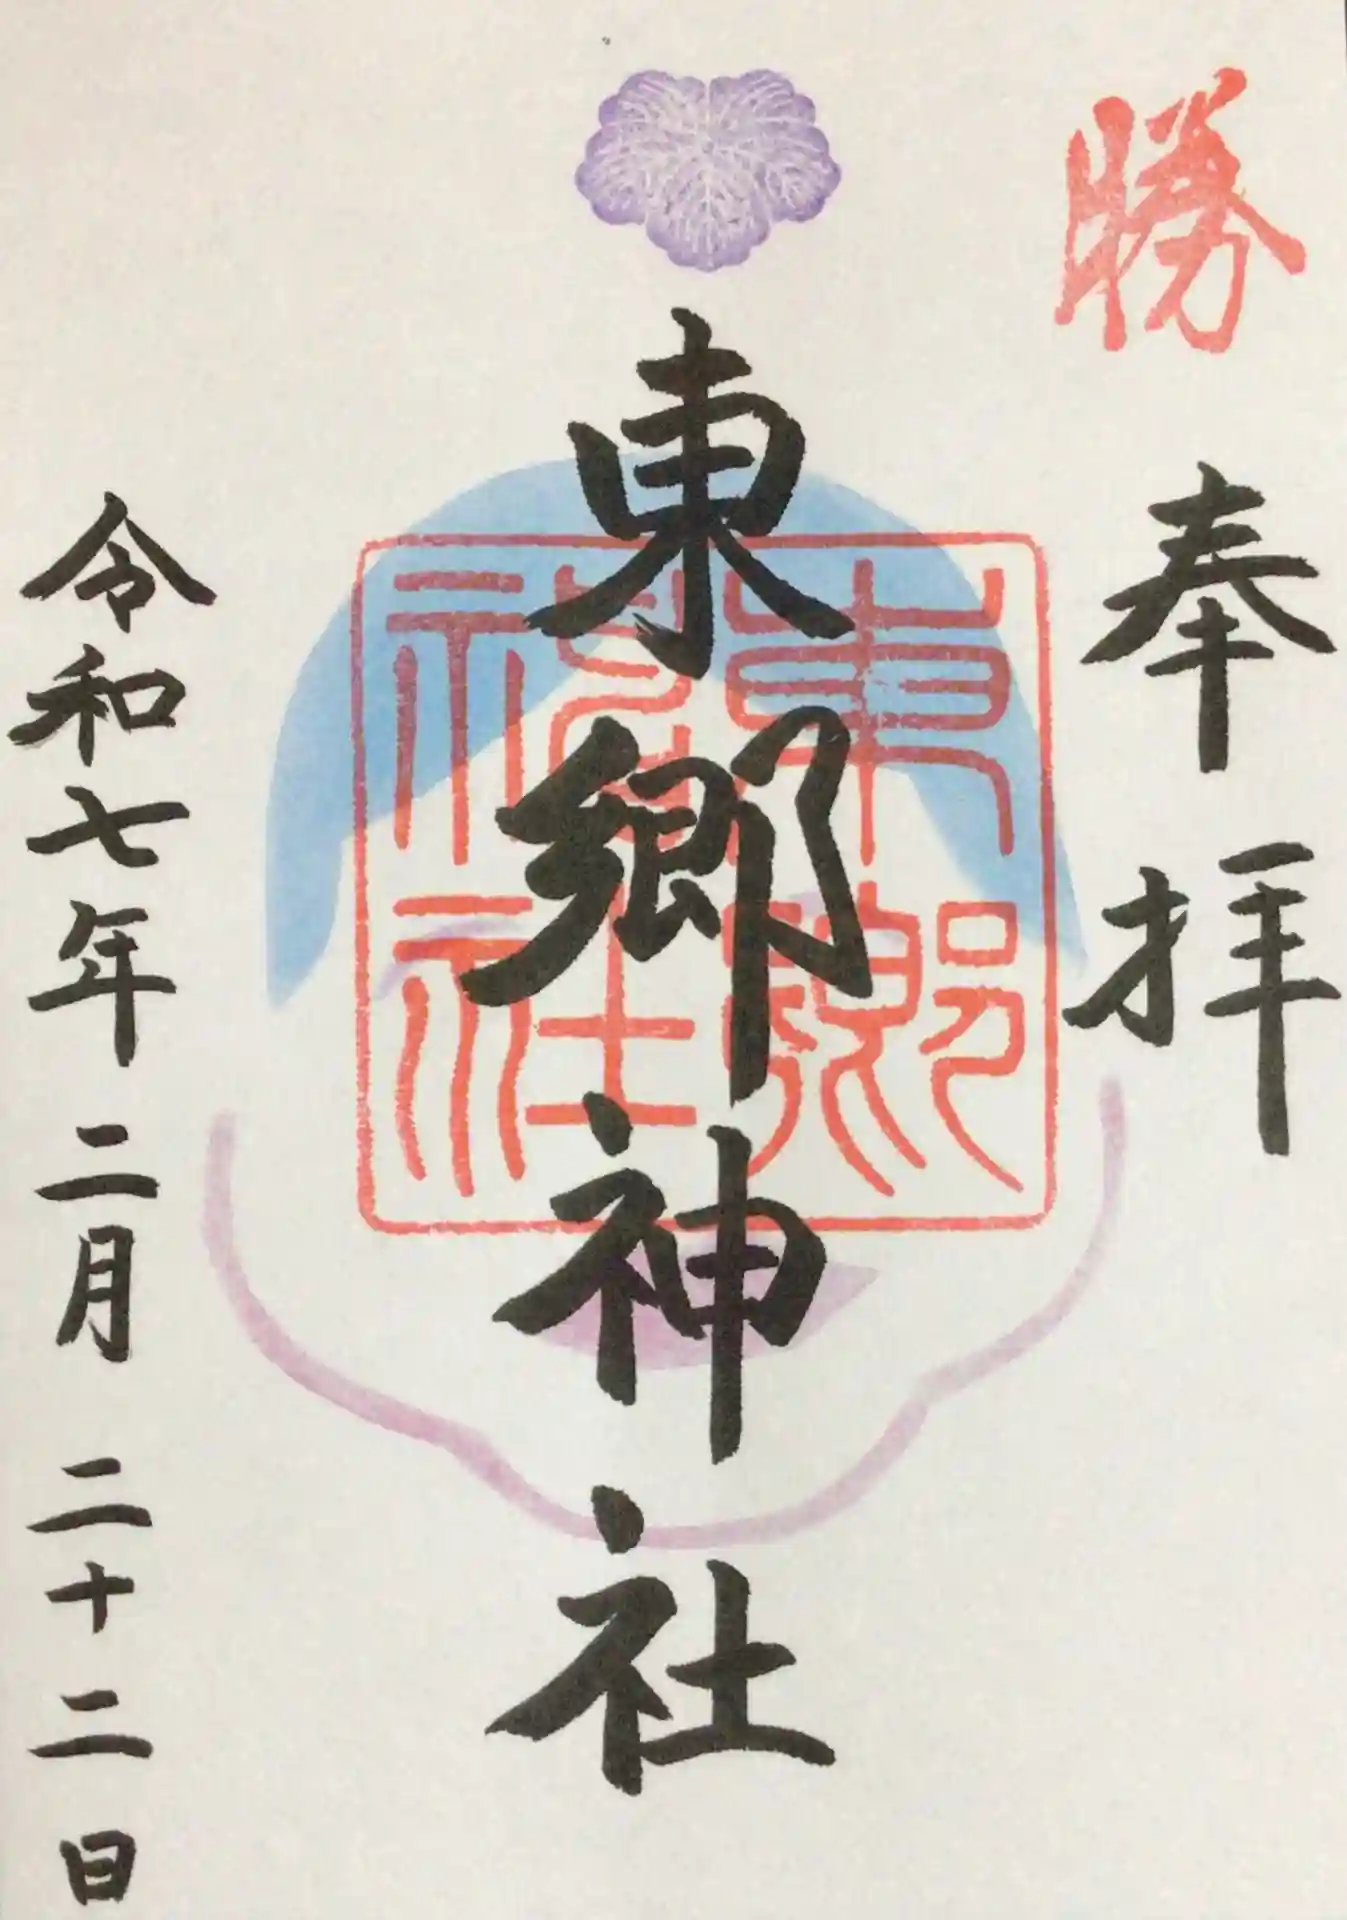 勝
奉拝
東郷神社
東郷神社
令和七年二月二十二日